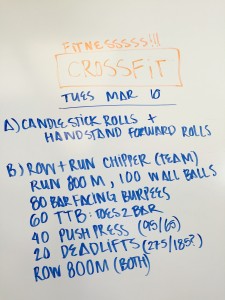 FITNESSSSS!!!
CROSSFIT
TUES MAR 10
A) CANDLESTICK ROLLS +
HANDSTAND FORWARD ROLLS
B) ROW + RUN CHIPPER (TEAM)
RUN 800 M, 100 WALL BALLS
80 BAR FACING BURPEES
60 TTB: TOES 2 BAR
40 PUSH PRESS (95/65)
20 DEADLIFTS (275/185?)
ROW 800M (BOTH)